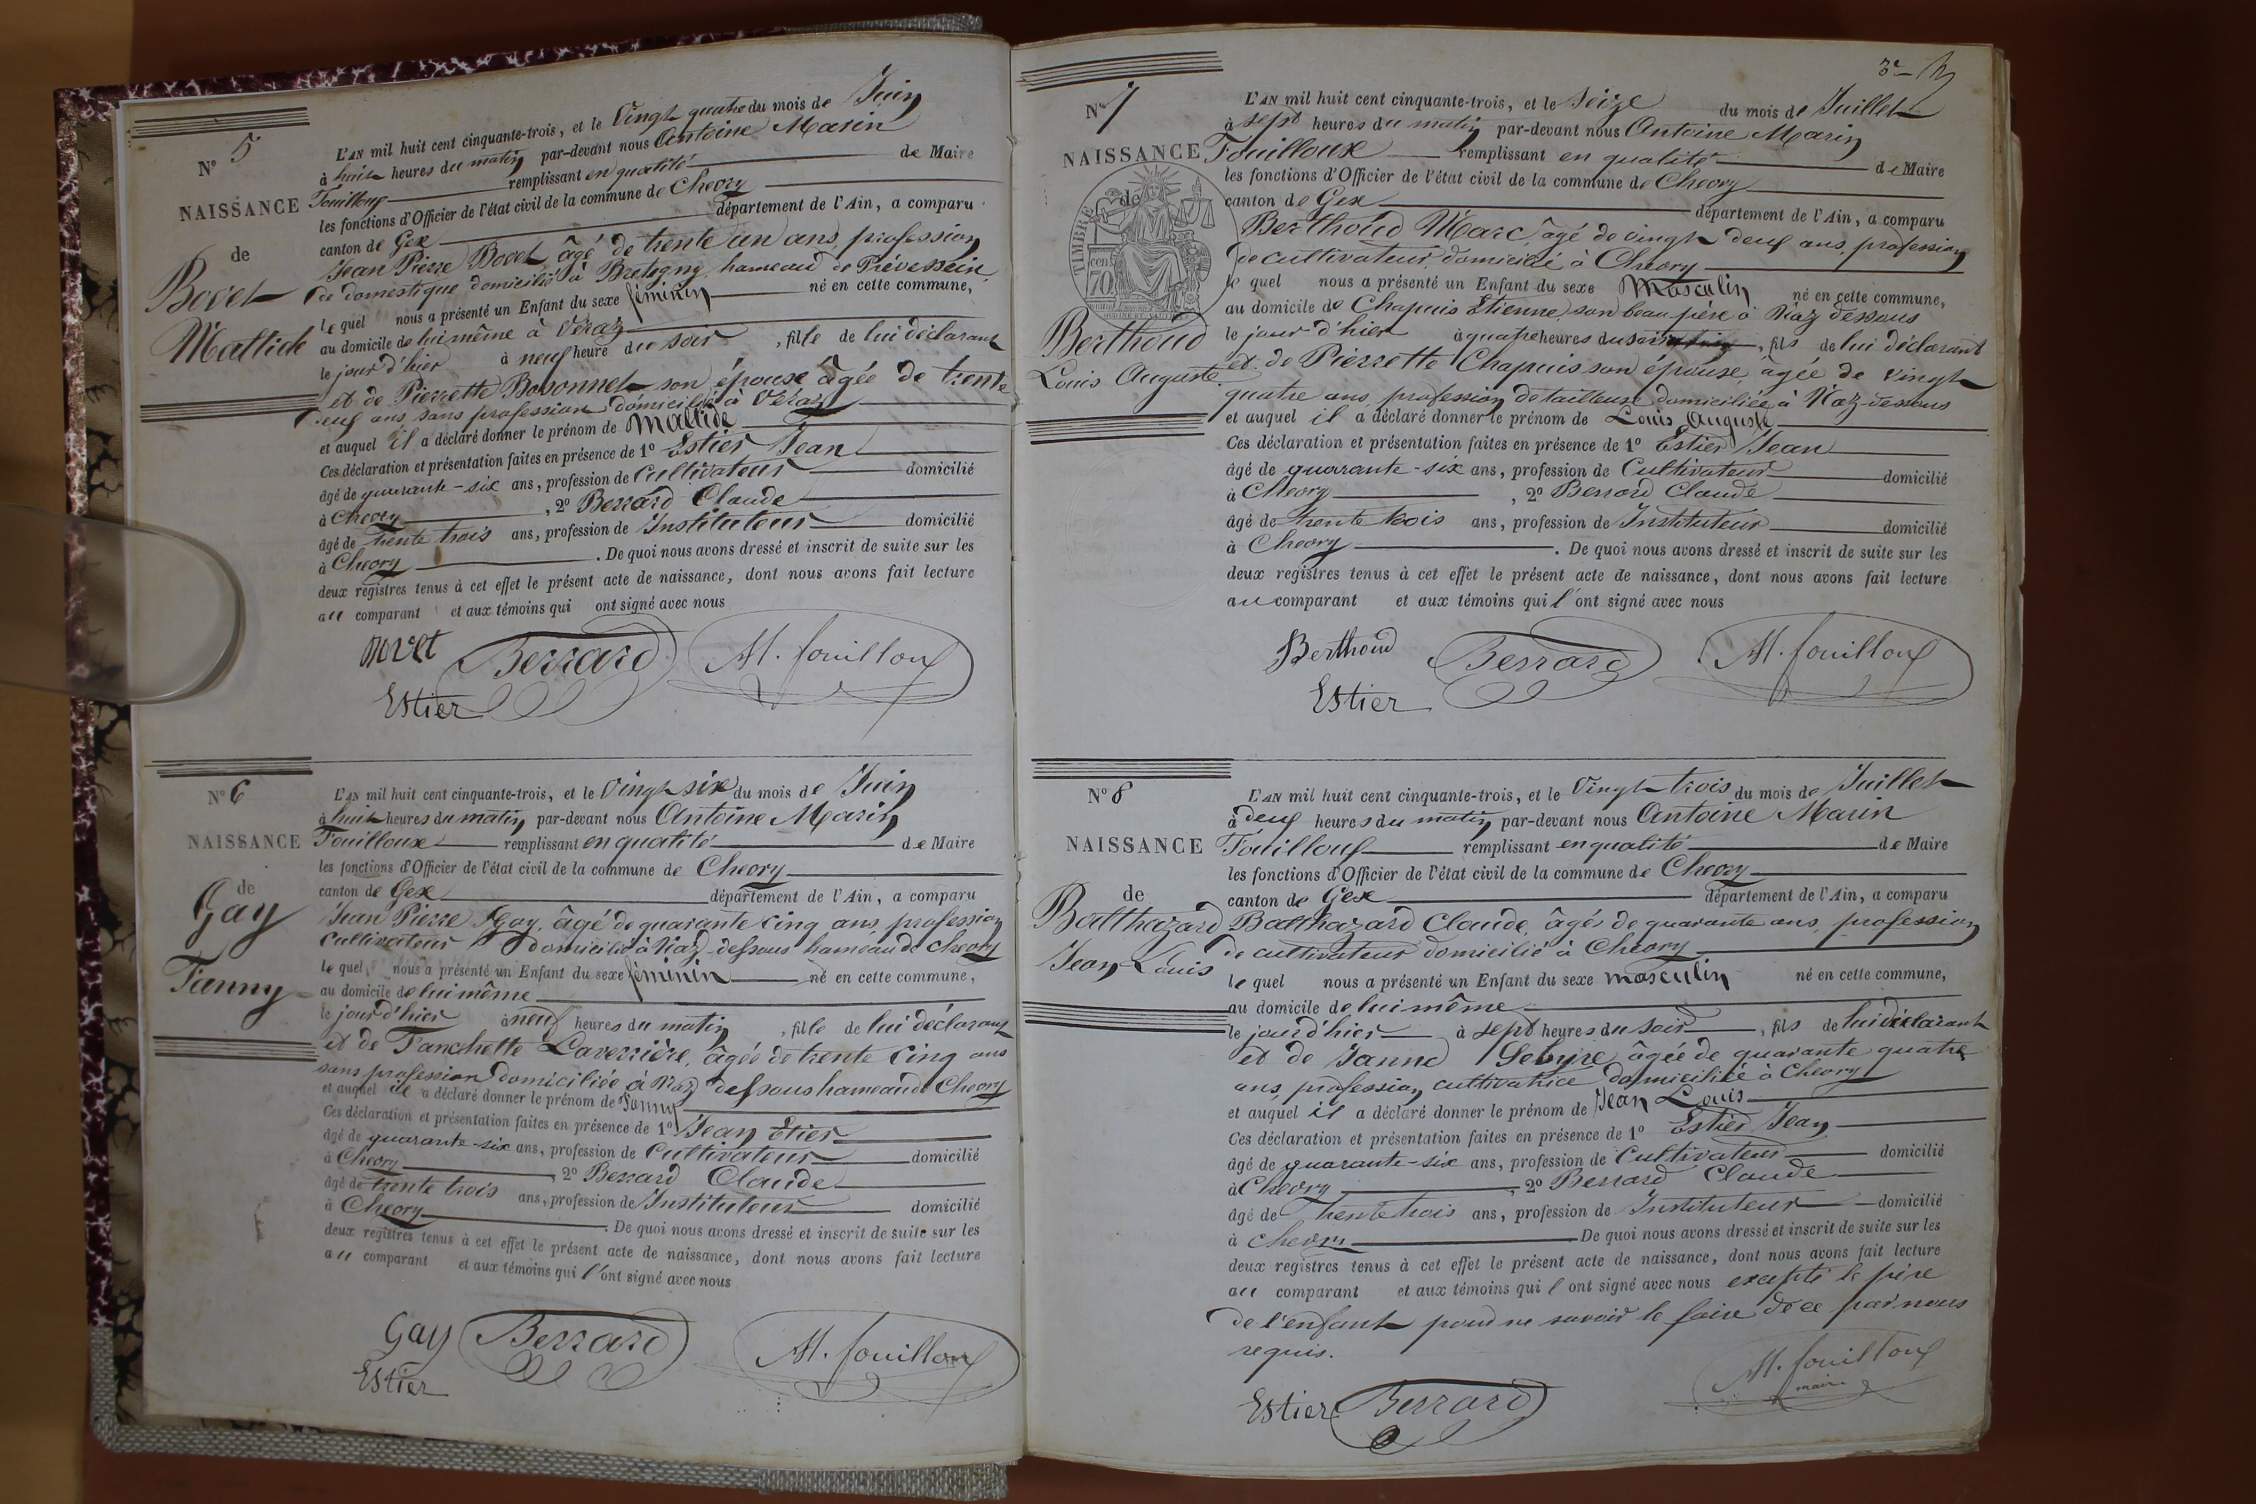 N° 5
NAISSANCE
de
Bovet
Mattide
L'AN mil huit cent cinquante-trois, et le Vingt quatre du mois de Juin
à huit heures du matin par-devant nous Antoine Marin
Fouilloux remplissant en qualité de Maire
les fonctions d'Officier de l'état civil de la commune de Chevry
canton de Gex département de l'Ain, a comparu
Jean Pierre Bovet âgé de trente un ans, profession
de domestique domicilié à Bretegny hameau de Prévessin
lequel nous a présenté un Enfant du sexe féminin né en cette commune,
au domicile de lui même à Véraz
le jour d'hier à neuf heure du soir, fille de lui déclarant
et de Pierrette Bosonnet son épouse âgée de trente
neuf ans, sans profession domiciliée à Véraz
et auquel il a déclaré donner le prénom de Mattide
Ces déclaration et présentation faites en présence de 1° Estier Jean
âgé de quarante-six ans, profession de Cultivateur domicilié
à Chevry, 2° Berrard Claude
âgé de trente trois ans, profession de Instituteur domicilié
à Chevry. De quoi nous avons dressé et inscrit de suite sur les
deux registres tenus à cet effet le présent acte de naissance, dont nous avons fait lecture
au comparant et aux témoins qui ont signé avec nous
Bovet Berrard M. fouilloux
Estier
N° 6
NAISSANCE
de
Gay
Fanny
L'AN mil huit cent cinquante-trois, et le Vingt six du mois de Juin
à huit heures du matin par-devant nous Antoine Marin
Fouilloux remplissant en qualité de Maire
les fonctions d'Officier de l'état civil de la commune de Chevry
canton de Gex département de l'Ain, a comparu
Jean Pierre Gay, âgé de quarante cinq ans, profession
Cultivateur domicilié à Naz-dessous hameau de Chevry
lequel nous a présenté un Enfant du sexe féminin né en cette commune,
au domicile de lui même
le jour d'hier à neuf heures du matin, fille de lui déclarant
et de Fanchette Laverrière, âgée de trente cinq ans
sans profession domiciliée à Naz dessous hameau de Chevry
et auquel il a déclaré donner le prénom de Fanny
Ces déclaration et présentation faites en présence de 1° Jean Etier
âgé de quarante-six ans, profession de Cultivateur domicilié
à Chevry 2° Berrard Claude
âgé de trente trois ans, profession de Instituteur domicilié
à Chevry. De quoi nous avons dressé et inscrit de suite sur les
deux registres tenus à cet effet le présent acte de naissance, dont nous avons fait lecture
au comparant et aux témoins qui l'ont signé avec nous
Gay Berrard M. fouilloux
Estier
3e
N° 7
NAISSANCE
de
TIMBRE
70
Berthoud
Louis Auguste
L'AN mil huit cent cinquante-trois, et le Seize du mois de Juillet
à sept heures du matin par-devant nous Antoine Marin
Fouilloux remplissant en qualité de Maire
les fonctions d'Officier de l'état civil de la commune de Chevry
canton de Gex département de l'Ain, a comparu
Berthoud Marc, âgé de vingt deux ans, profession
de cultivateur, domicilié à Chevry
lequel nous a présenté un Enfant du sexe Masculin né en cette commune,
au domicile de Chapuis Etienne son beau père à Naz dessous
le jour d'hier à quatre heures du soir, fils de lui déclarant
et de Pierrette Chapuis son épouse, âgée de vingt
quatre ans, profession de tailleuse domiciliée à Naz-dessous
et auquel il a déclaré donner le prénom de Louis Auguste
Ces déclaration et présentation faites en présence de 1° Estier Jean
âgé de quarante-six ans, profession de Cultivateur domicilié
à Chevry, 2° Berrard Claude
âgé de trente trois ans, profession de Instituteur domicilié
à Chevry. De quoi nous avons dressé et inscrit de suite sur les
deux registres tenus à cet effet le présent acte de naissance, dont nous avons fait lecture
au comparant et aux témoins qui l'ont signé avec nous
Berthoud Berrard M. fouilloux
Estier
N° 8
NAISSANCE
de
Balthazard
Jean Louis
L'AN mil huit cent cinquante-trois, et le Vingt trois du mois de Juillet
à deux heures du matin par-devant nous Antoine Marin
Fouilloux remplissant en qualité de Maire
les fonctions d'Officier de l'état civil de la commune de Chevry
canton de Gex département de l'Ain, a comparu
Balthazard Claude, âgé de quarante ans, profession
de cultivateur domicilié à Chevry
lequel nous a présenté un Enfant du sexe masculin né en cette commune,
au domicile de lui même
le jour d'hier à sept heures du soir, fils de lui déclarant
et de Janne âgée de quarante quatre
ans, profession cultivatrice domiciliée à Chevry
et auquel il a déclaré donner le prénom de Jean Louis
Ces déclaration et présentation faites en présence de 1° Estier Jean
âgé de quarante-six ans, profession de Cultivateur domicilié
à Chevry, 2° Berrard Claude
âgé de trente trois ans, profession de Instituteur domicilié
à Chevry De quoi nous avons dressé et inscrit de suite sur les
deux registres tenus à cet effet le présent acte de naissance, dont nous avons fait lecture
au comparant et aux témoins qui l'ont signé avec nous excepté le père
de l'enfant pour ne savoir le faire de ce par nous
requis.
M. fouilloux
maire
Estier Berrard